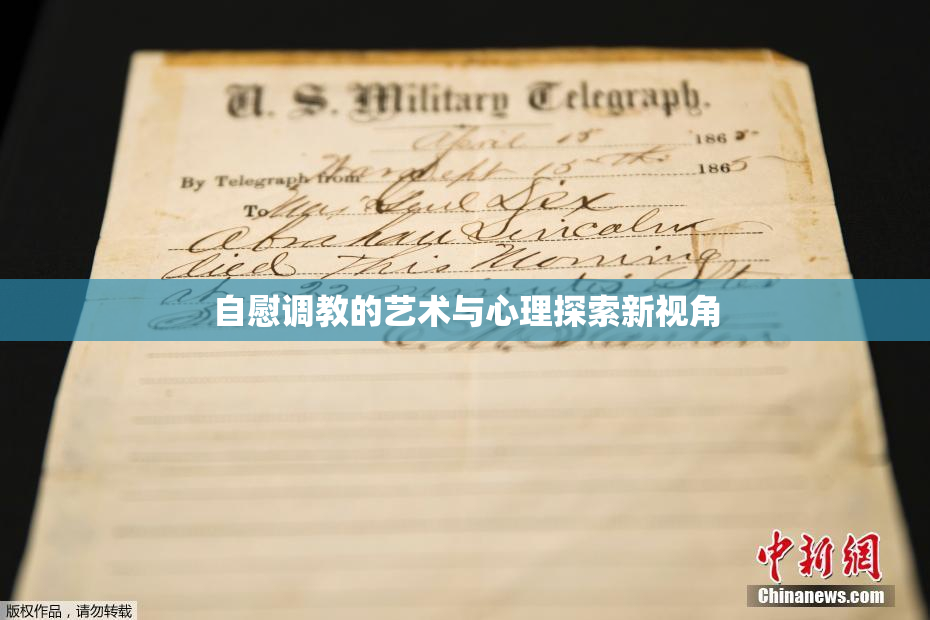 U. S. Military Telegraph.
April 15 1865
By Telegraph from War Dept 15th 1865
To Maj Genl Dix
Abraham Lincoln
died This Morning
at 22 minutes after
自慰调教的艺术与心理探索新视角
E. M. Stanton
中新網
Chinanews.com
版权作品，请勿转载